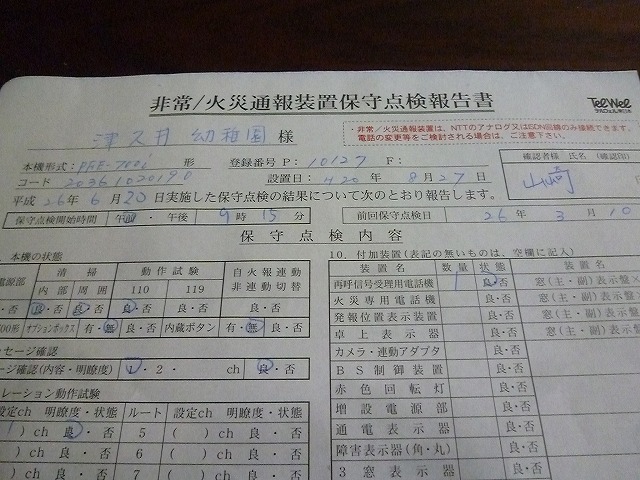 非常/火災通報装置保守点検報告書
TelWel
テルウェル東日本
津久井 幼稚園 様
・非常/火災通報装置は、NTTのアナログ又はISDN回線のみ接続できます。
電話の変更等をご検討される場合は、ご注意下さい。
本機形式: 形 登録番号 P: 10127 F:
コード 20361020190 設置日: H20 年 8 月 27 日
確認者様 氏名 (確認印)
山崎
平成 26 年 6 月 20 日実施した保守点検の結果について次のとおり報告します。
保守点検開始時間 午前 ・ 午後 9 時 15 分
前回保守点検日 26 年 3 月 10
保守点検内容
本機の状態
電源部 清掃 動作試験 自火報連動 非連動切替
内部 周囲 110 119
・否 良・否 良・否 良・否 良・否 良・否
00形 オプションボックス 有・無 良・否 内蔵ボタン 有・無 良・否
セージ確認
ージ確認(内容・明瞭度) 1・2・ ch 良・否
レーション動作試験
設定ch 明瞭度・状態 ルート 設定ch 明瞭度・状態
1) ch 良・否 5 ( ) ch 良・否
) ch 良・否 6 ( ) ch 良・否
) ch 良・否 7 ( ) ch 良・否
10. 付加装置(表記の無いものは、空欄に記入)
装置名 数量 状態 装置名
再呼信号受理用電話機 1 良・否 窓(主・副)表示盤×
火災専用電話機 良・否 窓(主・副)表示盤
発報位置表示装置 良・否 窓(主・副)表示盤
卓上表示器 良・否 窓(主・副)表示盤
カメラ・連動アダプタ 良・否
BS制御装置 良・否
赤色回転灯 良・否
増設電源部 良・否
通電表示器 良・否
障害表示器(角・丸) 良・否
3窓表示器 良・否